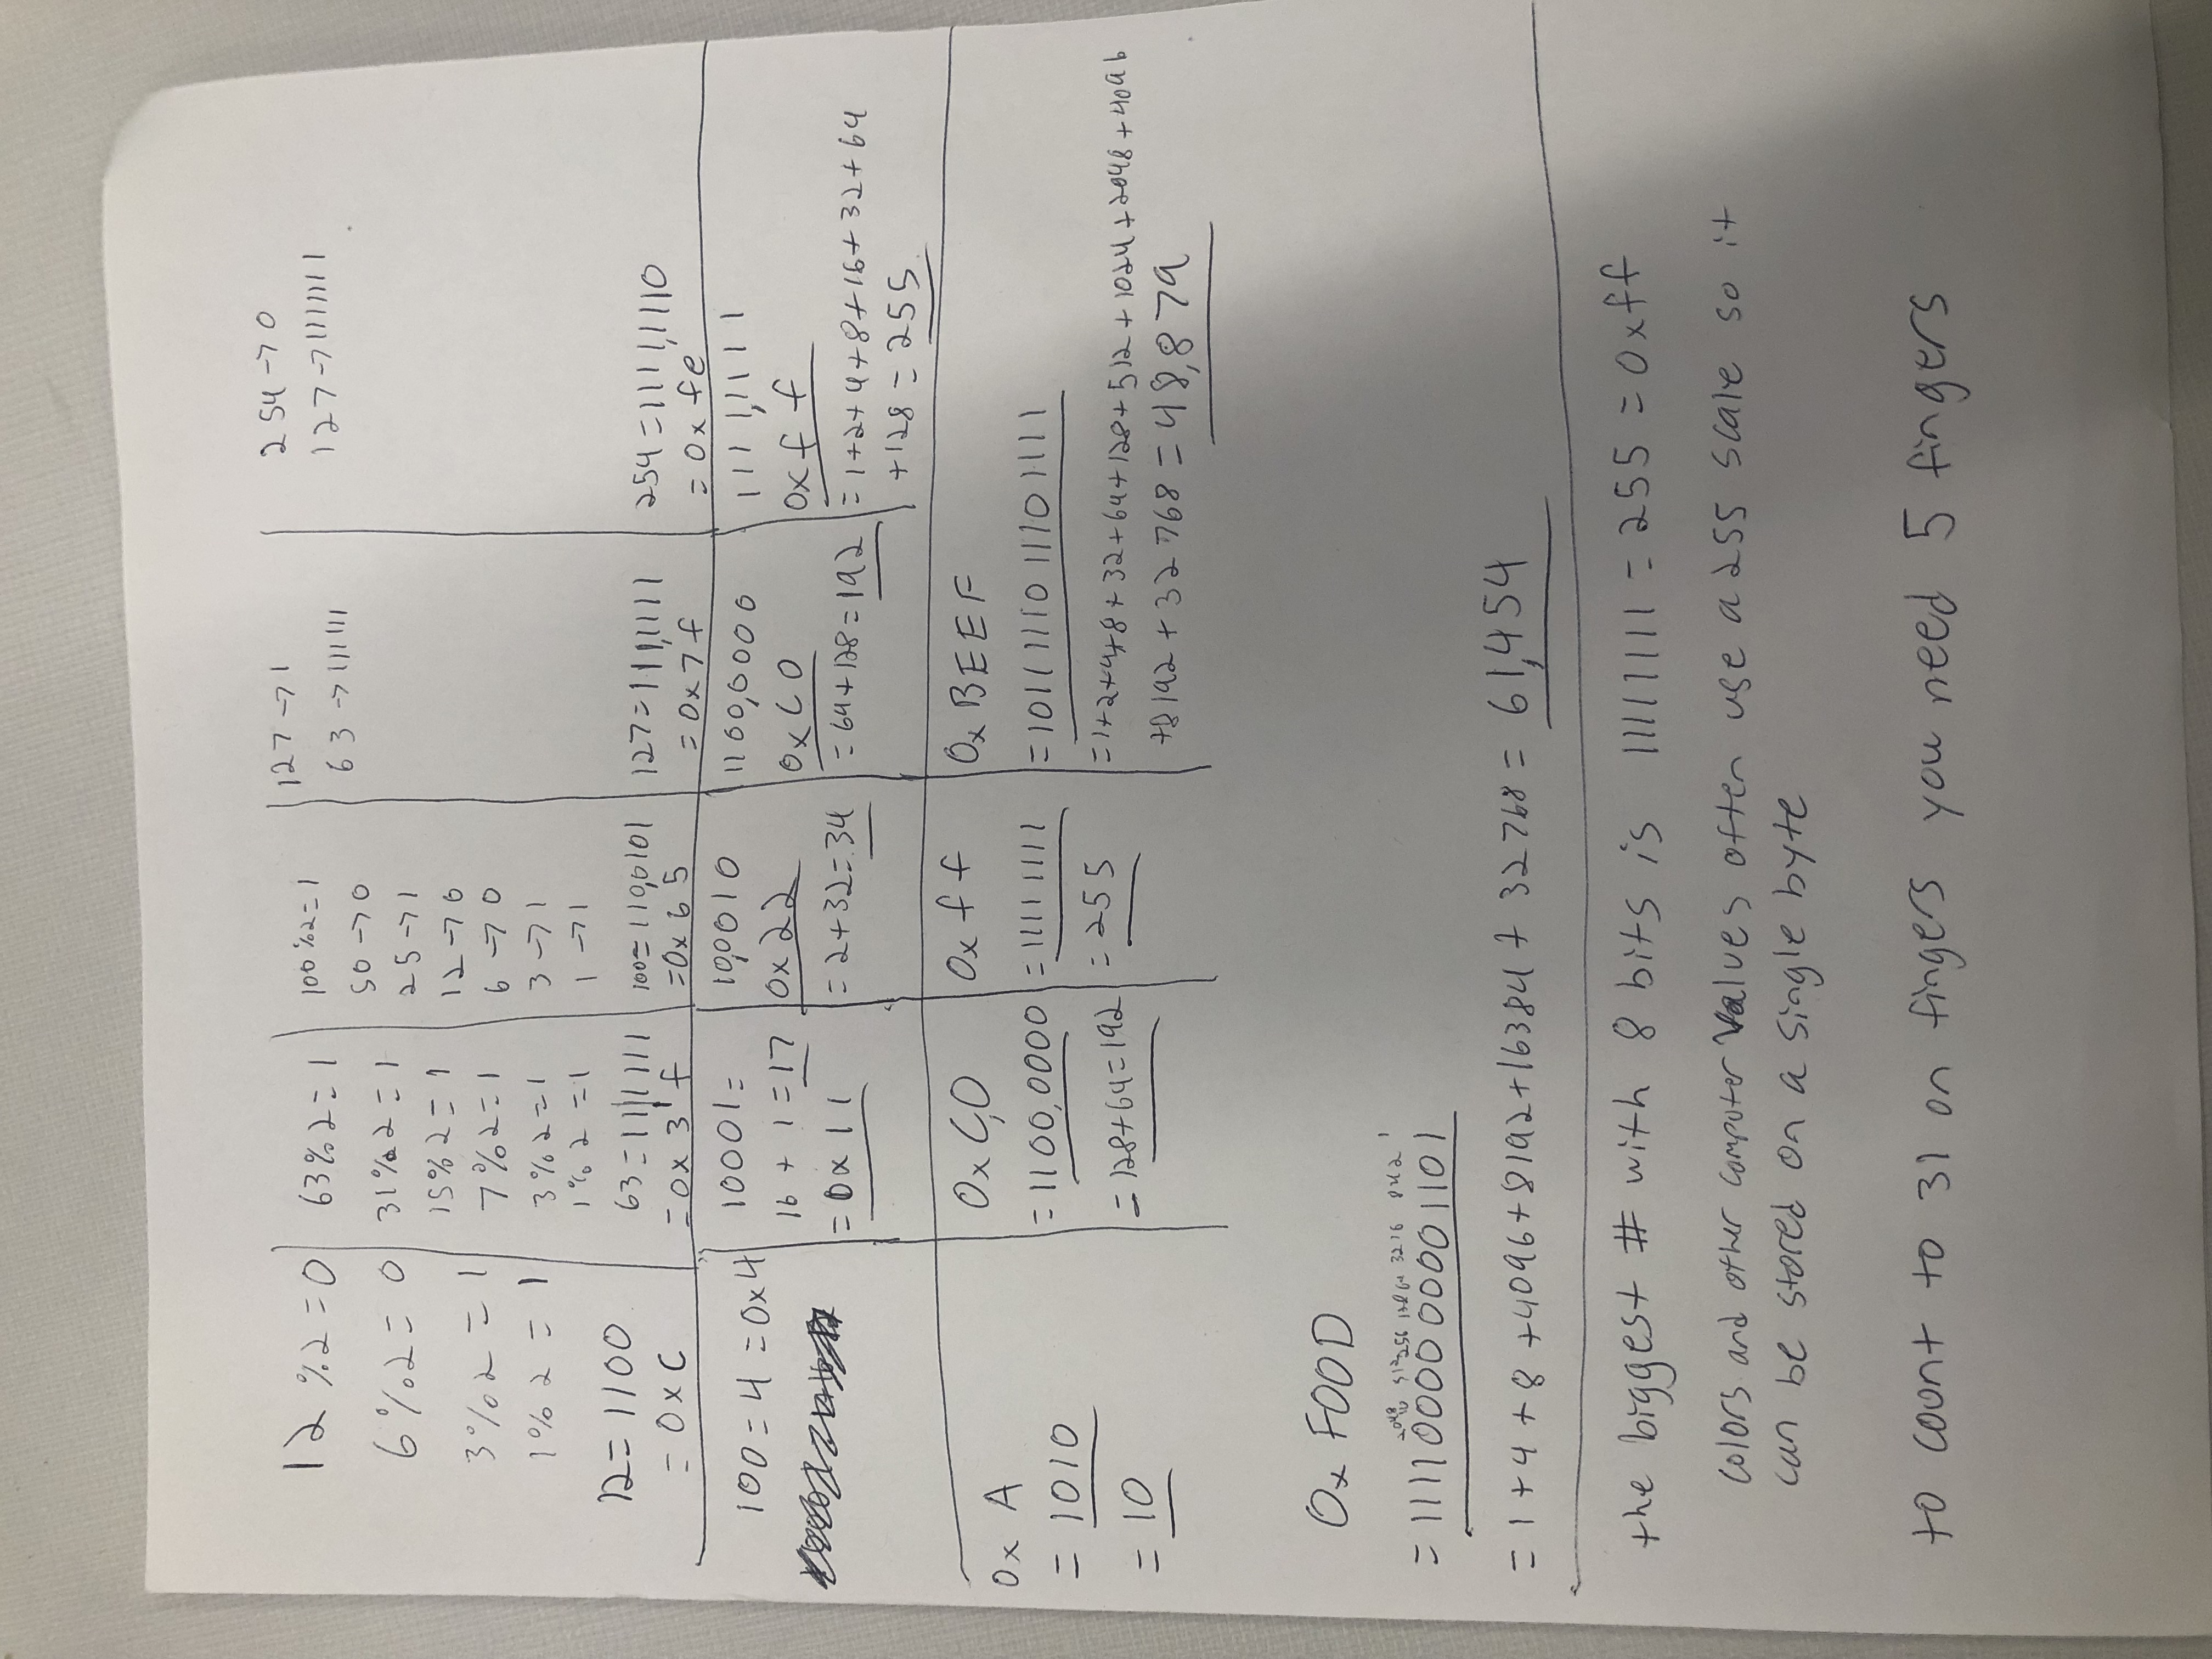 12 %2=0
6%2=0
3%2=1
1%2=1
12=1100
=0xC
63%2=1
31%2=1
15%2=1
7%2=1
3%2=1
1%2=1
63=111111
=0x3f
100%2=1
50→0
25→1
12→0
6→0
3→1
1→1
100=110,0101
=0x65
127→1
63→111111
127=111,1111
=0x7f
254→0
127→1111111
254=1111,1110
=0xfe
100=4=0x4
10001=
16+1=17
=0x11
10,0010
0x22
=2+32=34
1100,0000
0xC0
=64+128=192
1111,1111
0xff
=1+2+4+8+16+32+64
+128=255
0x A
=1010
=10
0xC,0
=1100,0000
=128+64=192
0xff
=11111111
=255
0xBEEF
=1011111011101111
=1+2+4+8+32+64+128+512+1024+2048+4096
+8192+32768=48,879
0xF00D
512 256 128 64 32 16 8 4 2 1
=1111000000001101
=1+4+8+4096+8192+16384+32768=61,454
the biggest # with 8 bits is 11111111=255=0xff
colors and other computer values often use a 255 scale so it
can be stored on a single byte
to count to 31 on fingers you need 5 fingers